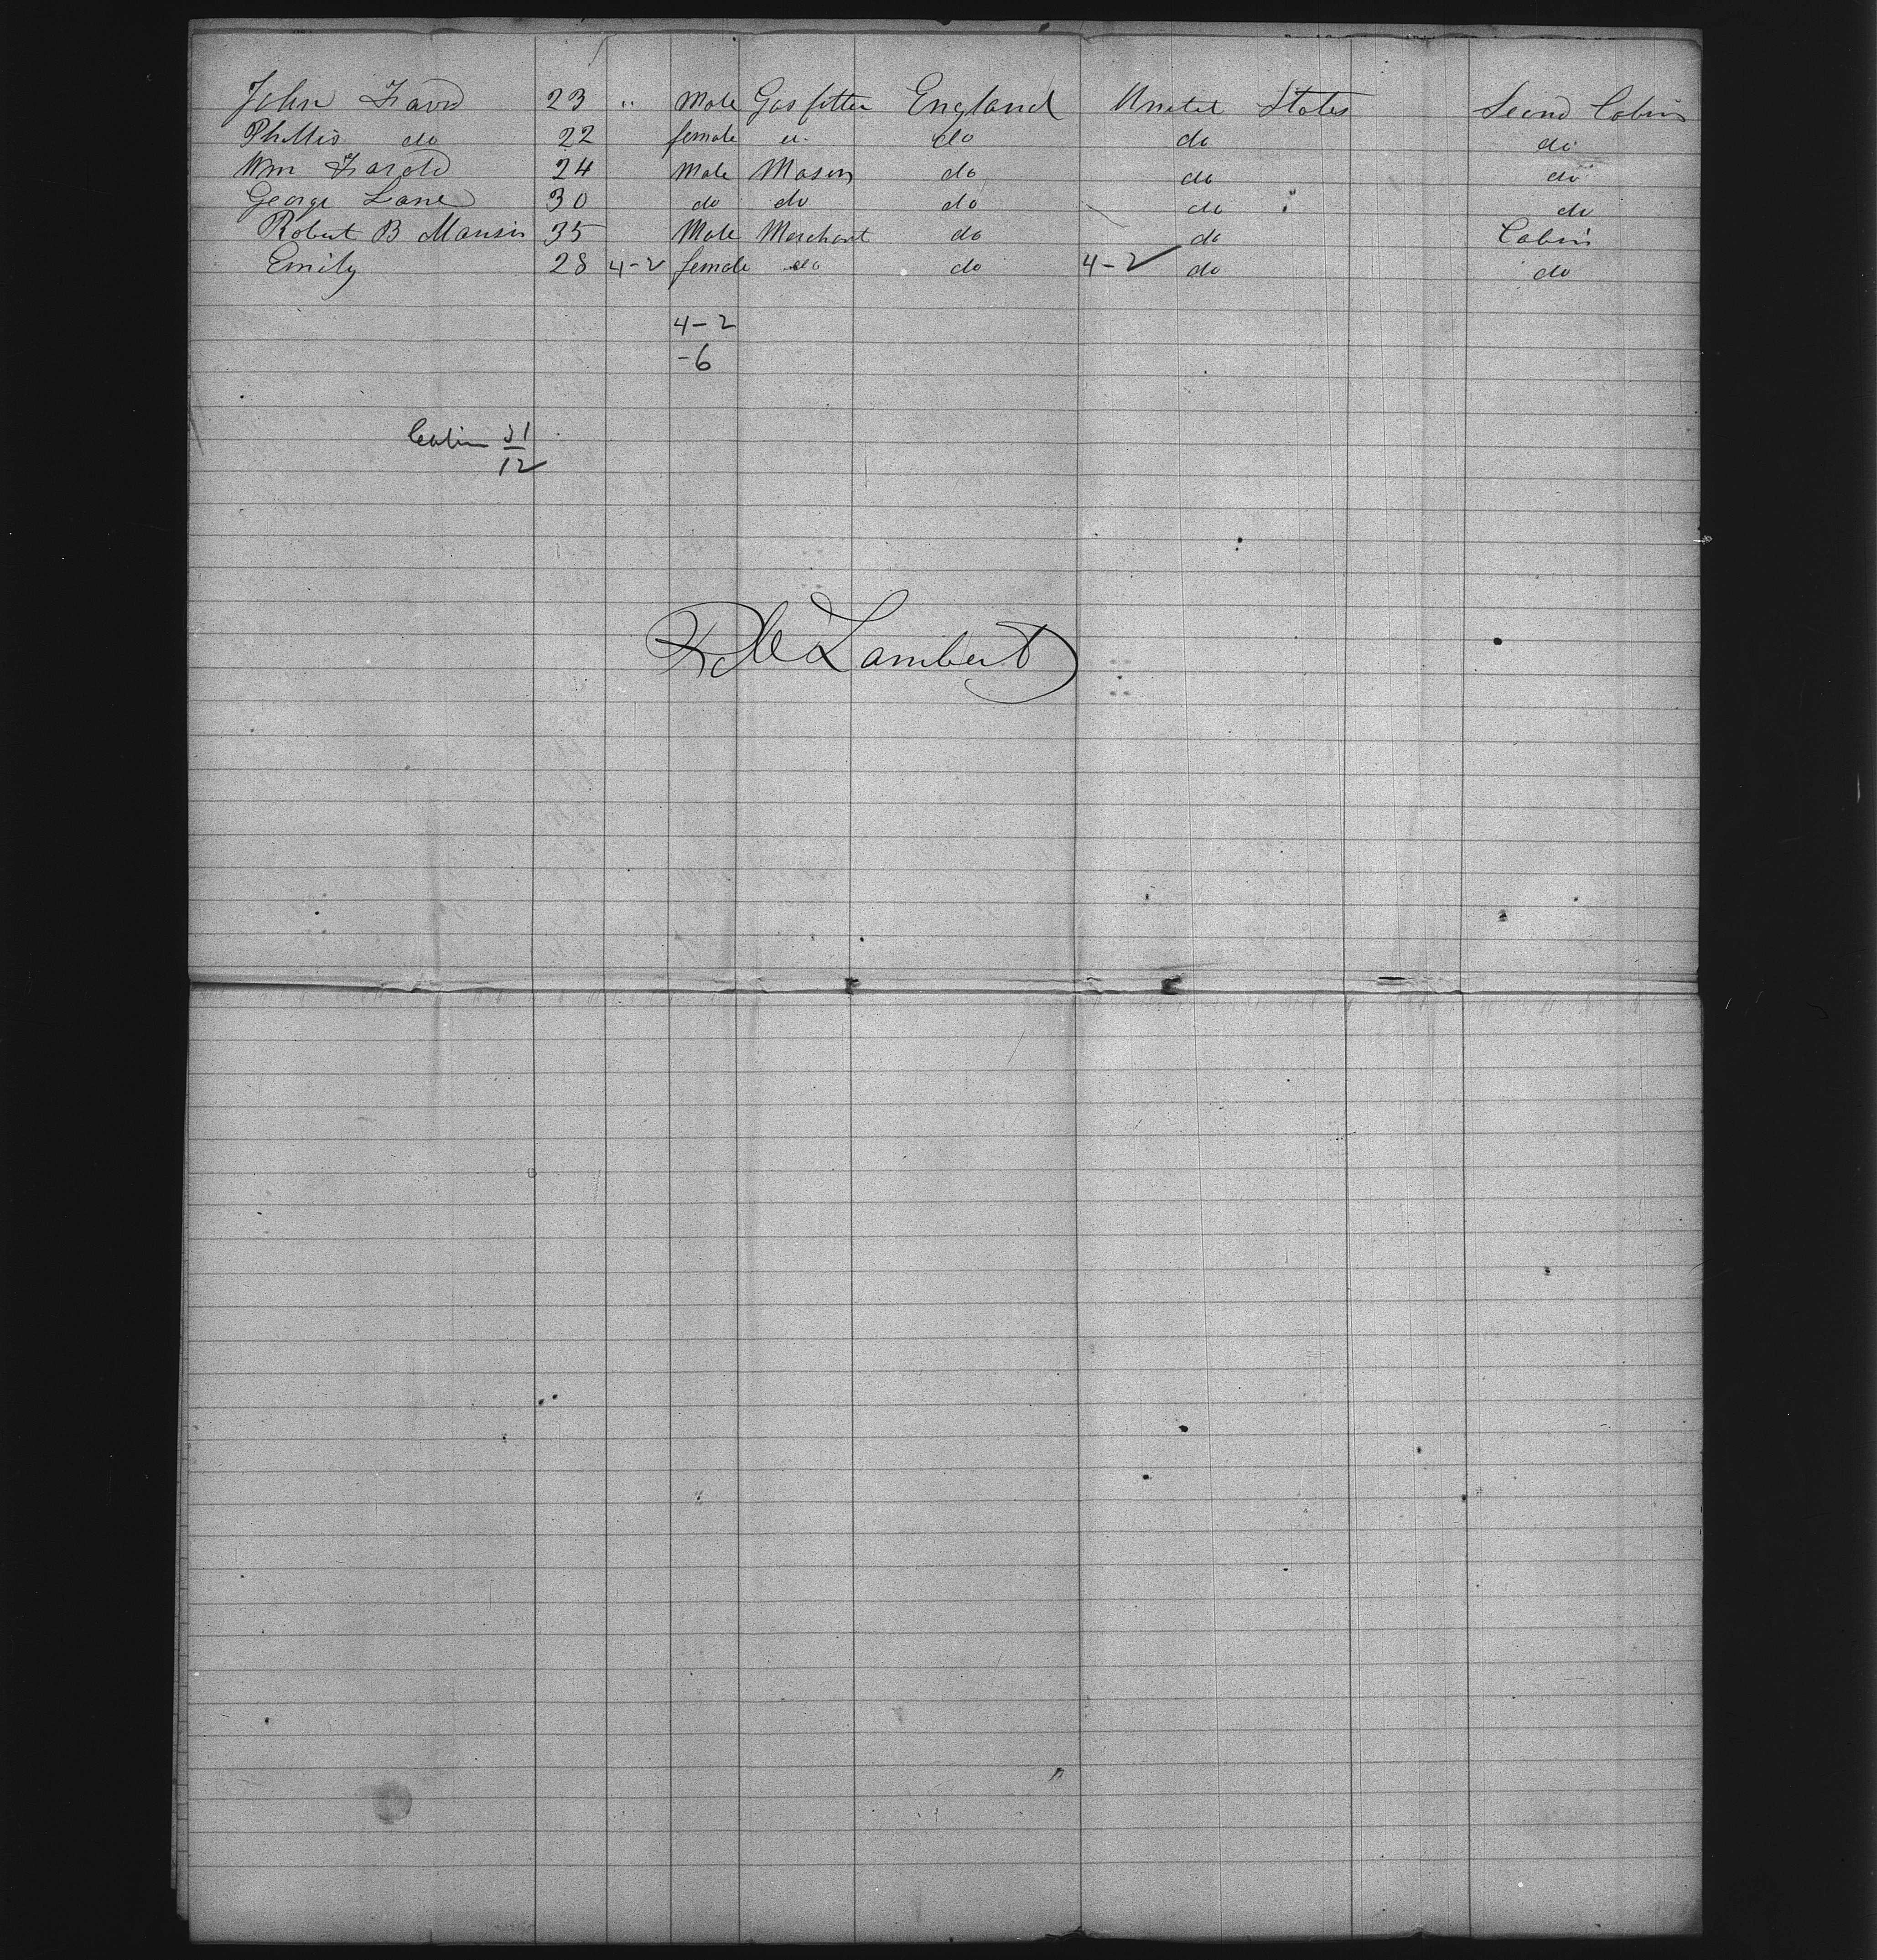 John 23 " Male Gas fitter England United States Second Cabin
Phillis do 22 female " do do do
Wm Farold 24 Male Mason do do do
George Lane 30 do do do do do
Robert B Mansin 35 Male Merchant do do Cabin
Emily 28 4-2 female do do 4-2 do do
4-2
-6
Cabin 21
12
Lambert